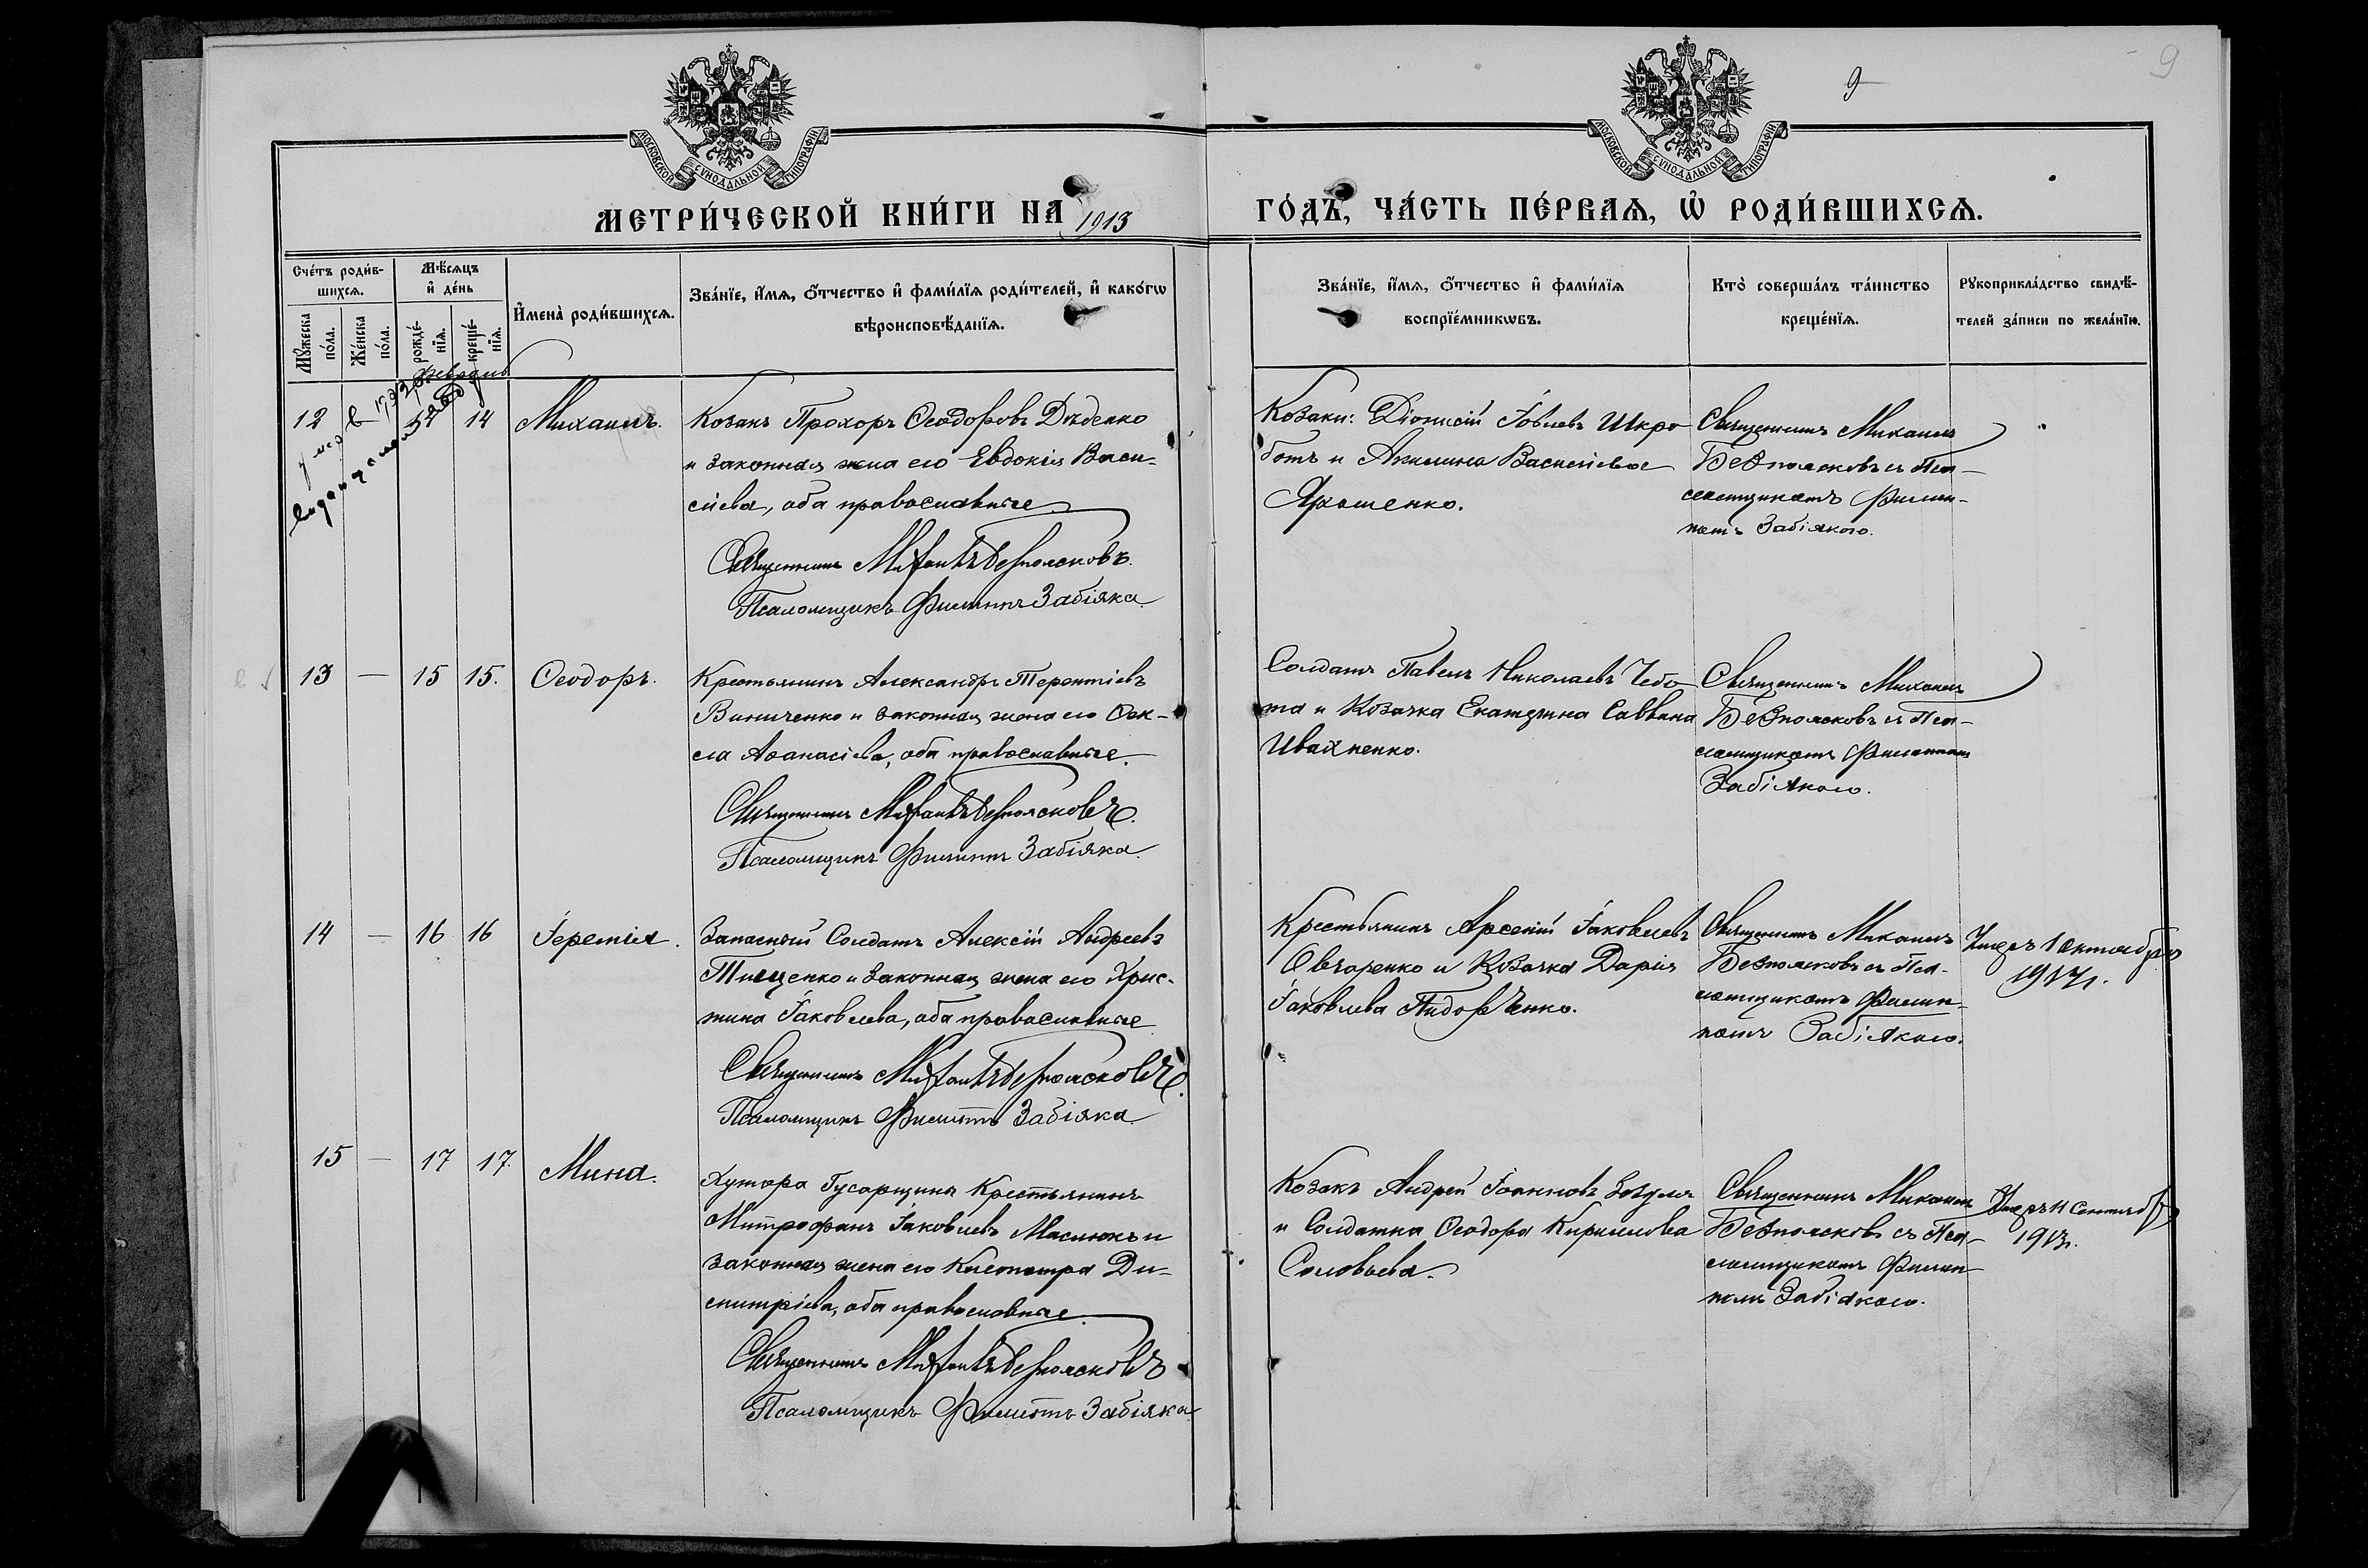 9
9
МОСКОВСКОЙ СѴНОДАЛЬНОЙ ТИПОГРАФІИ
МОСКОВСКОЙ СѴНОДАЛЬНОЙ ТИПОГРАФІИ
МЕТРИ́ЧЕСКОЙ КНИ́ГИ НА 1913
ГО́ДЪ, ЧА́СТЬ ПЕ́РВАѦ, Ѡ҆ РОДИ́ВШИХСѦ.
Сче́тъ роди́в-
шихсѧ.
Мꙋ́жеска по́ла.
Же́нска по́ла.
Мѣ́сѧцъ
и҆ де́нь
рожде́-
нїѧ.
креще́-
нїѧ.
И҆мена̀ роди́вшихсѧ.
Зва́нїе, и҆́мѧ, ѻ҆́тчество и҆ фами́лїѧ роди́телей, и҆ како́гѡ
вѣроисповѣ́данїѧ.
Зва́нїе, и҆́мѧ, ѻ҆́тчество и҆ фами́лїѧ
воспрїе́мникѡвъ.
Кто̀ соверша́лъ та́инство
креще́нїѧ.
Рꙋкоприкла́дство свидѣ́-
телей за́писи по жела́нїю.
Февраль
12
14
Михаилъ.
Козакъ Прохоръ Ѳеодоровъ Дѣденко
и законная жена его Евдокія Васи-
ліева, оба православные
Священникъ Михаилъ Безпоясковъ.
Псаломщикъ Филиппъ Забіяка.
Козаки: Діонисій Іовлевъ Шкро
ботъ и Акилина Василіева
Ярошенко.
Священникъ Михаилъ
Безпоясковъ съ Пса-
ломщикомъ Филип-
помъ Забіякою.
13 — 15 15. Ѳеодоръ.
Крестьянинъ Александръ Терентіевъ
Виниченко и законная жена его Ѳек-
ла Аѳанасіева, оба православные.
Священникъ Михаилъ Безпоясковъ.
Псаломщикъ Филиппъ Забіяка.
Солдатъ Павелъ Николаевъ Чебо
та и Козачка Екатерина Саввина
Ивахненко.
Священникъ Михаилъ
Безпоясковъ съ Пса-
ломщикомъ Филиппомъ
Забіякою.
14 — 16 16 Іеремія.
Запасный Солдатъ Алексій Андреевъ
Тищенко и законная жена его Хрис-
тина Іаковлева, оба православные
Священникъ Михаилъ Безпоясковъ.
Псаломщикъ Филиппъ Забіяка
Крестьянинъ Арсеній Іаковлевъ
Овчаренко и Козачка Дарія
Іаковлева Сидорченко.
Священникъ Михаилъ
Безпоясковъ съ Пса-
ломщикомъ Филип-
помъ Забіякою.
Умеръ 1 октября
15 — 17 17. Мина.
Хутора Гусарщина Крестьянинъ
Митрофанъ Іаковлевъ Маслюкъ и
законная жена его Клеопатра Ди-
митріева, оба православные.
Священникъ Михаилъ Безпоясковъ
Псаломщикъ Филиппъ Забіяка
Козакъ Андрей Іоанновъ Зозуля
и Солдатка Ѳеодора Кириллова
Соловьева.
Священникъ Михаилъ
Безпоясковъ съ Пса-
ломщикомъ Филип-
помъ Забіякою.
Умеръ 11 Сентября
1913г.